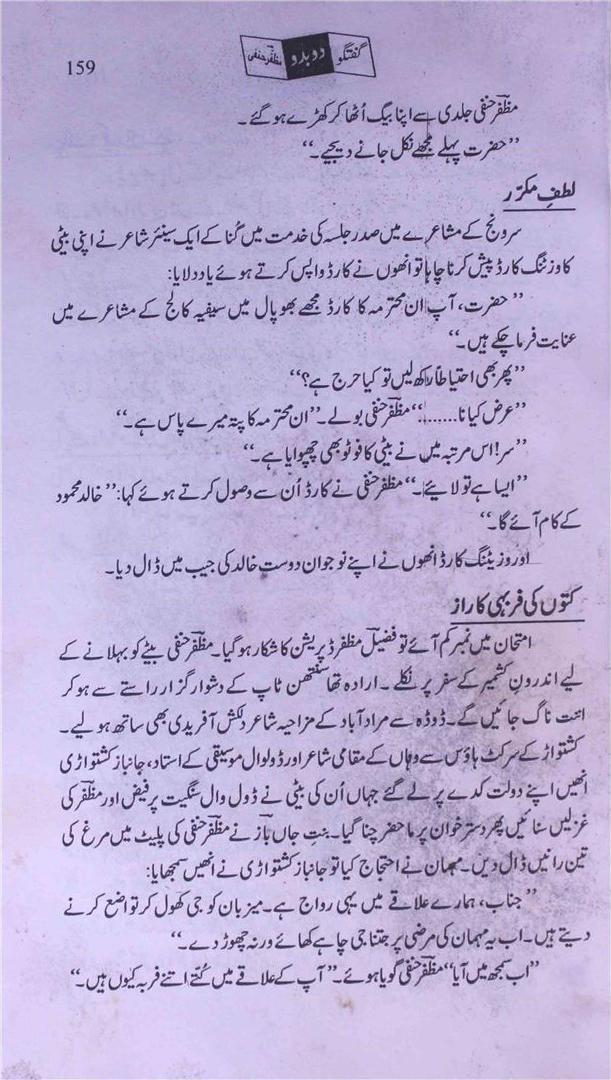 159
گفتگو دو بدو مظفر حنفی
مظفر حنفی جلدی سے اپنا بیگ اُٹھا کر کھڑے ہو گئے۔
’’حضرت پہلے مجھے نکل جانے دیجیے۔‘‘
لطفِ مکرّر
سرونج کے مشاعرے میں صدر جلسہ کی خدمت میں گنا کے ایک سینئر شاعر نے اپنی بیٹی
کا وزٹنگ کارڈ پیش کرنا چاہا تو انھوں نے کارڈ واپس کرتے ہوئے یاد دلایا:
’’حضرت، آپ ان محترمہ کا کارڈ مجھے بھوپال میں سیفیہ کالج کے مشاعرے میں
عنایت فرما چکے ہیں۔‘‘
’’پھر بھی احتیاطاً رکھ لیں تو کیا حرج ہے؟‘‘
’’عرض کیا نا.......‘‘ مظفر حنفی بولے۔ ’’ان محترمہ کا پتہ میرے پاس ہے۔‘‘
’’سر! اس مرتبہ میں نے بیٹی کا فوٹو بھی چھپوایا ہے۔‘‘
’’ایسا ہے تو لائیے۔‘‘ مظفر حنفی نے کارڈ اُن سے وصول کرتے ہوئے کہا: ’’خالد محمود
کے کام آئے گا۔‘‘
اور وزیٹنگ کارڈ انھوں نے اپنے نوجوان دوست خالد کی جیب میں ڈال دیا۔
کتوں کی فربہی کا راز
امتحان میں نمبر کم آئے تو فضیل مظفر ڈپریشن کا شکار ہو گیا۔ مظفر حنفی بیٹے کو بہلانے کے
لیے اندرونِ کشمیر کے سفر پر نکلے۔ ارادہ تھا سنتھن ٹاپ کے دشوار گزار راستے سے ہو کر
اننت ناگ جائیں گے۔ ڈوڈہ سے مراد آباد کے مزاحیہ شاعر دلکش آفریدی بھی ساتھ ہو لیے۔
کشتواڑ کے سرکٹ ہاؤس سے وہاں کے مقامی شاعر اور ڈولوال موسیقی کے استاد، جانباز کشتواڑی
انھیں اپنے دولت کدے پر لے گئے جہاں اُن کی بیٹی نے ڈول وال سنگیت پر فیض اور مظفر کی
غزلیں سنائیں پھر دسترخوان پر ماحضر چنا گیا۔ بنتِ جاں باز نے مظفر حنفی کی پلیٹ میں مرغ کی
تین رانیں ڈال دیں۔ مہمان نے احتجاج کیا تو جانباز کشتواڑی نے انھیں سمجھایا:
’’جناب، ہمارے علاقے میں یہی رواج ہے۔ میزبان کو جی کھول کر تواضع کرنے
دیتے ہیں۔ اب یہ مہمان کی مرضی پر جتنا جی چاہے کھائے ورنہ چھوڑ دے۔‘‘
’’اب سمجھ میں آیا‘‘ مظفر حنفی گویا ہوئے۔ ’’آپ کے علاقے میں کُتّے اتنے فربہ کیوں ہیں۔‘‘